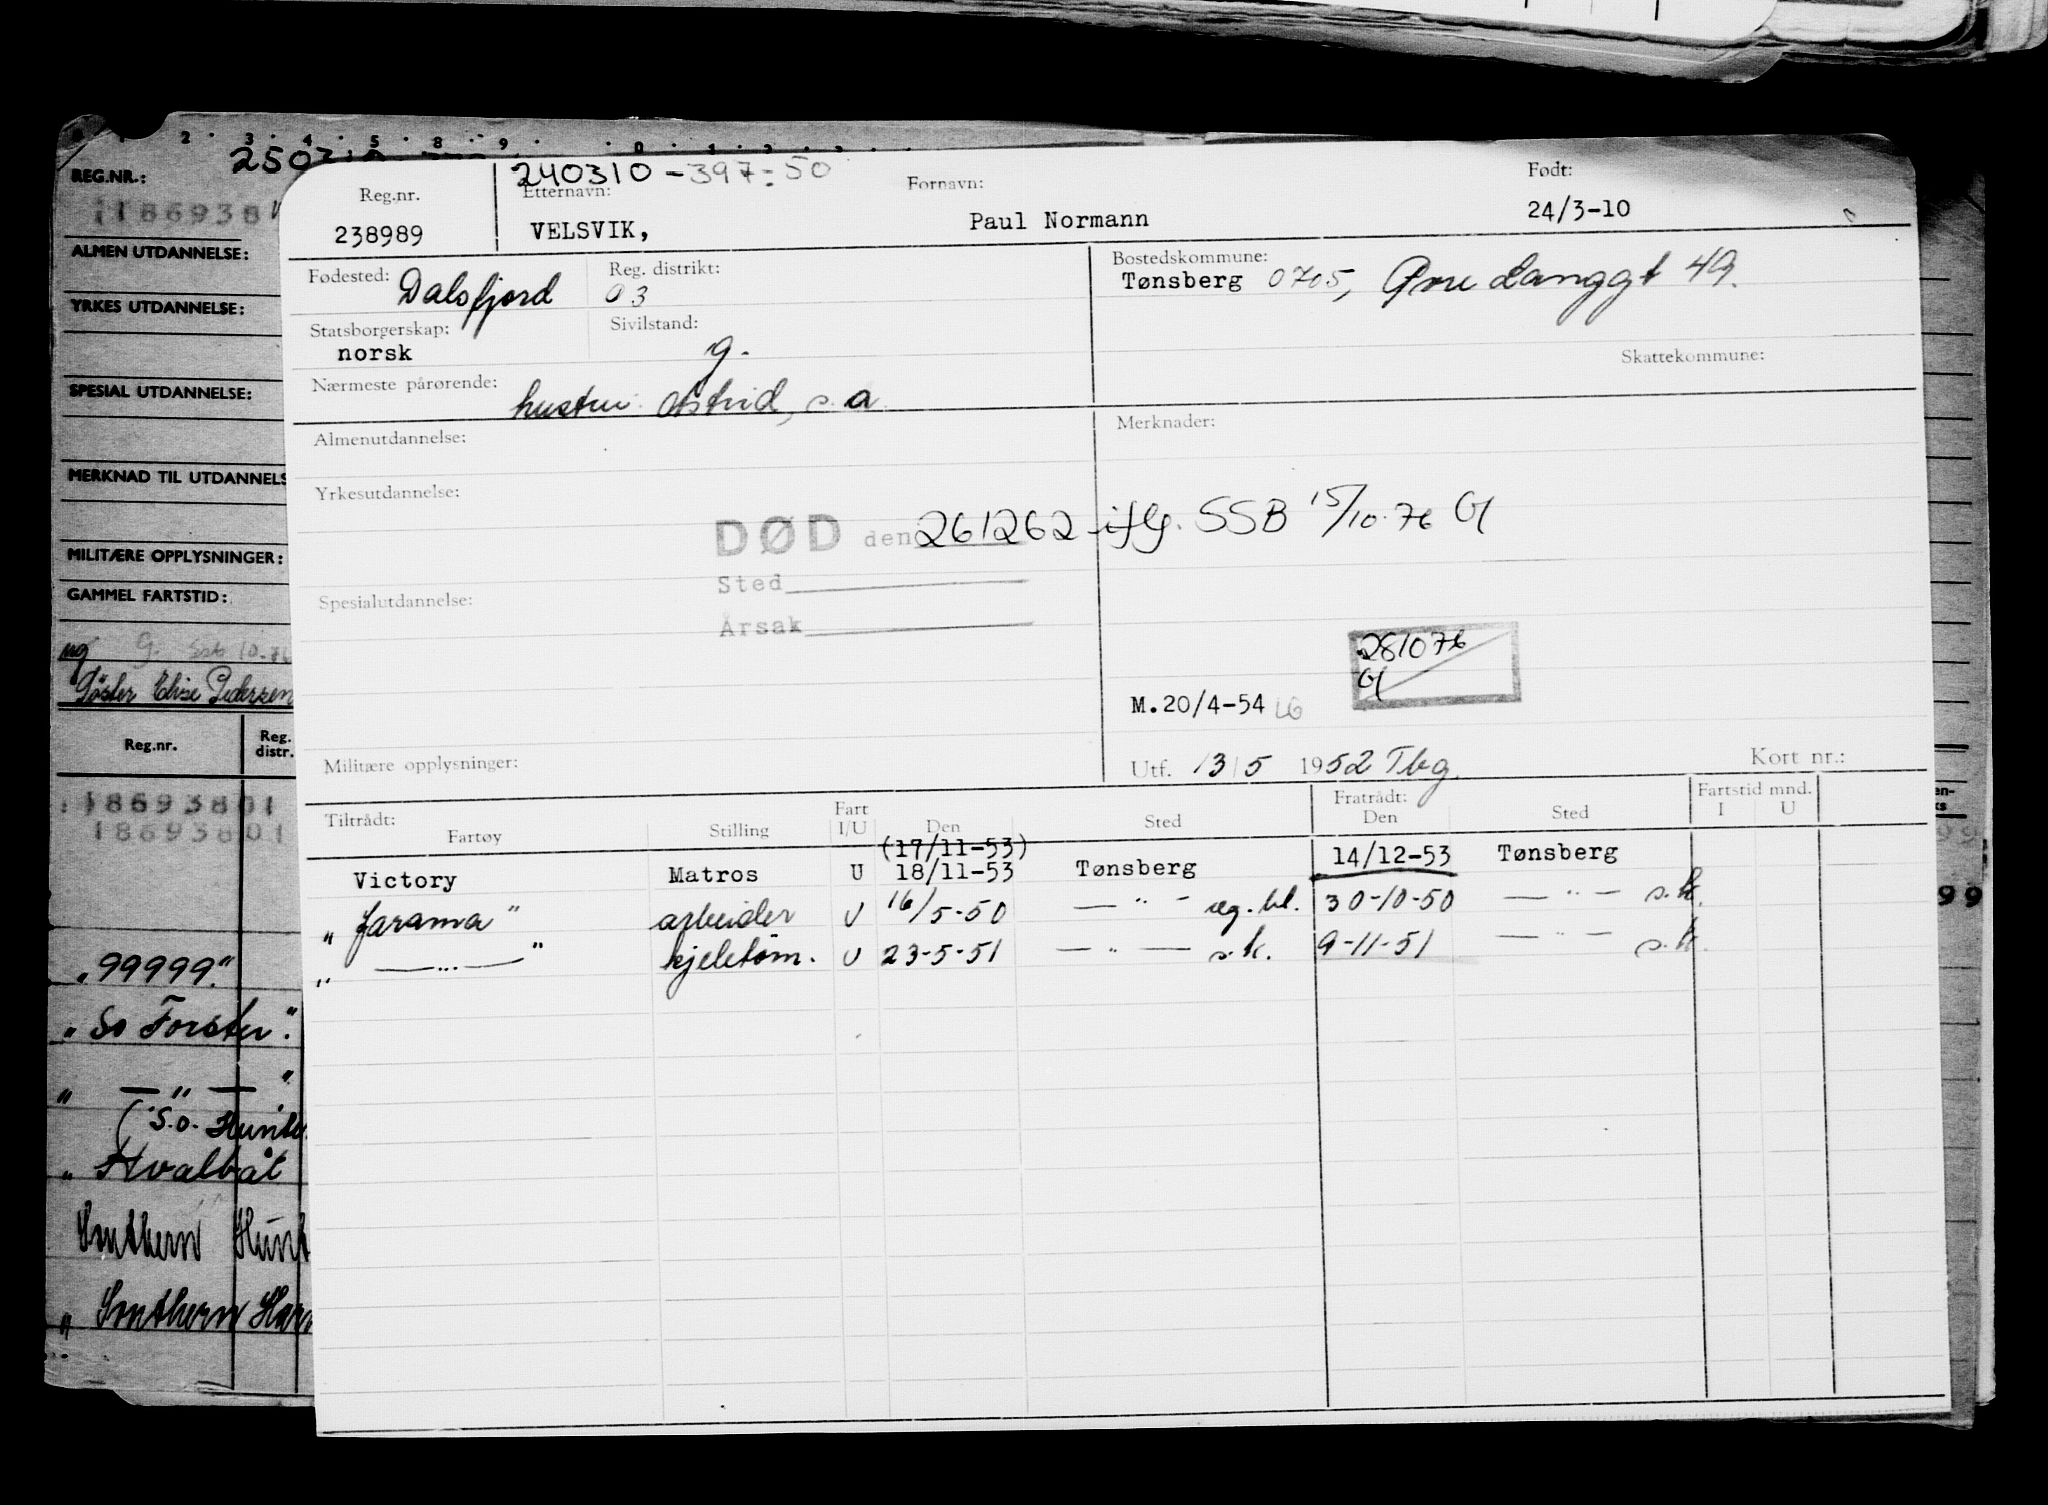 REG.NR.:
1186938
ALMEN UTDANNELSE:
YRKES UTDANNELSE:
SPESIAL UTDANNELSE:
MERKNAD TIL UTDANNELS
MILITÆRE OPPLYSNINGER:
GAMMEL FARTSTID:
ug G. SSB 10.76
Søster Elise Pedersen
Reg.nr. Reg. distr.
18693801
18693801
"99999."
"So Forster".
" — " — "
("S.o. Hunte
" Hvalbåt
Southern Hunt
" Southern Har
240310-397=50
Reg.nr. Etternavn: Fornavn: Født:
238989 VELSVIK, Paul Normann 24/3-10
Fødested: Dalsfjord Reg. distrikt: 03 Bostedskommune:
Tønsberg 0705, Øvre Langgt 49.
Statsborgerskap: norsk Sivilstand: g.
Skattekommune:
Nærmeste pårørende: hustru Astrid, s.a.
Almenutdannelse: Merknader:
Yrkesutdannelse:
DØD den 261262 iflg. SSB 15/10.76
Sted
Spesialutdannelse:
Årsak
281076
M.20/4-54
Militære opplysninger: Utf. 13/5 1952 Tbg. Kort nr.:
Tiltrådt: Fratrådt: Fartstid mnd.
Fartøy Stilling Fart I/U Den Sted Den Sted I U
(17/11-53)
Victory Matros U 18/11-53 Tønsberg 14/12-53 Tønsberg
" Jarama " arbeider U 16/5-50 — " — reg.bl. 30-10-50 — " — s.k.
" — " — " kjeletøm. U 23-5-51 — " — s.k. 9-11-51 — " — s.k.
99